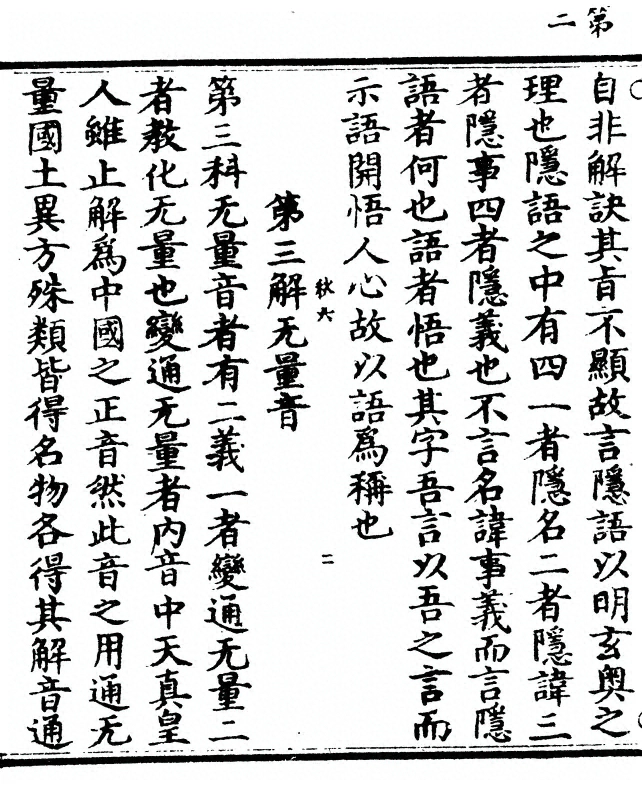 第二
自非解訣其旨不顯故言隱語以明玄奧之
理也隱語之中有四一者隱名二者隱諱三
者隱事四者隱義也不言名諱事義而言隱
語者何也語者悟也其字吾言以吾之言而
示語開悟人心故以語爲稱也
第三解无量音
秋六
二
第三科无量音者有二義一者變通无量二
者教化无量也變通无量者內音中天真皇
人雖止解爲中國之正音然此音之用通无
量國土異方殊類皆得名物各得其解音通